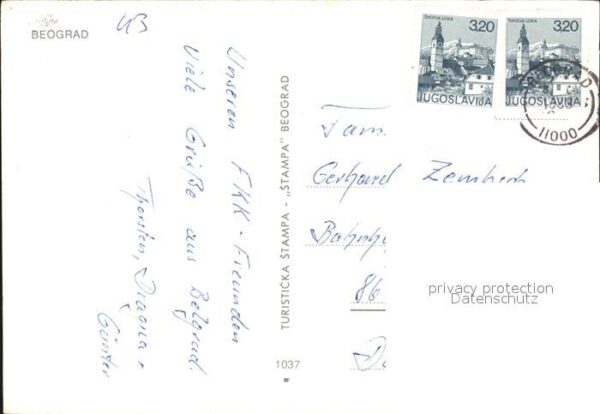 BEOGRAD
43
Unseren FKK-Freunden
Viele Grüße aus Belgrad.
Thorsten, Dragna +
Günter
TURISTIČKA ŠTAMPA - „ŠTAMPA" BEOGRAD
1037
ŠKOFJA LOKA
3,20
JUGOSLAVIJA
ŠKOFJA LOKA
3,20
JUGOSLAVIJA
BEOGRAD
11000
Fam.
Gerhard
Bahnho
86
privacy protection
Datenschutz